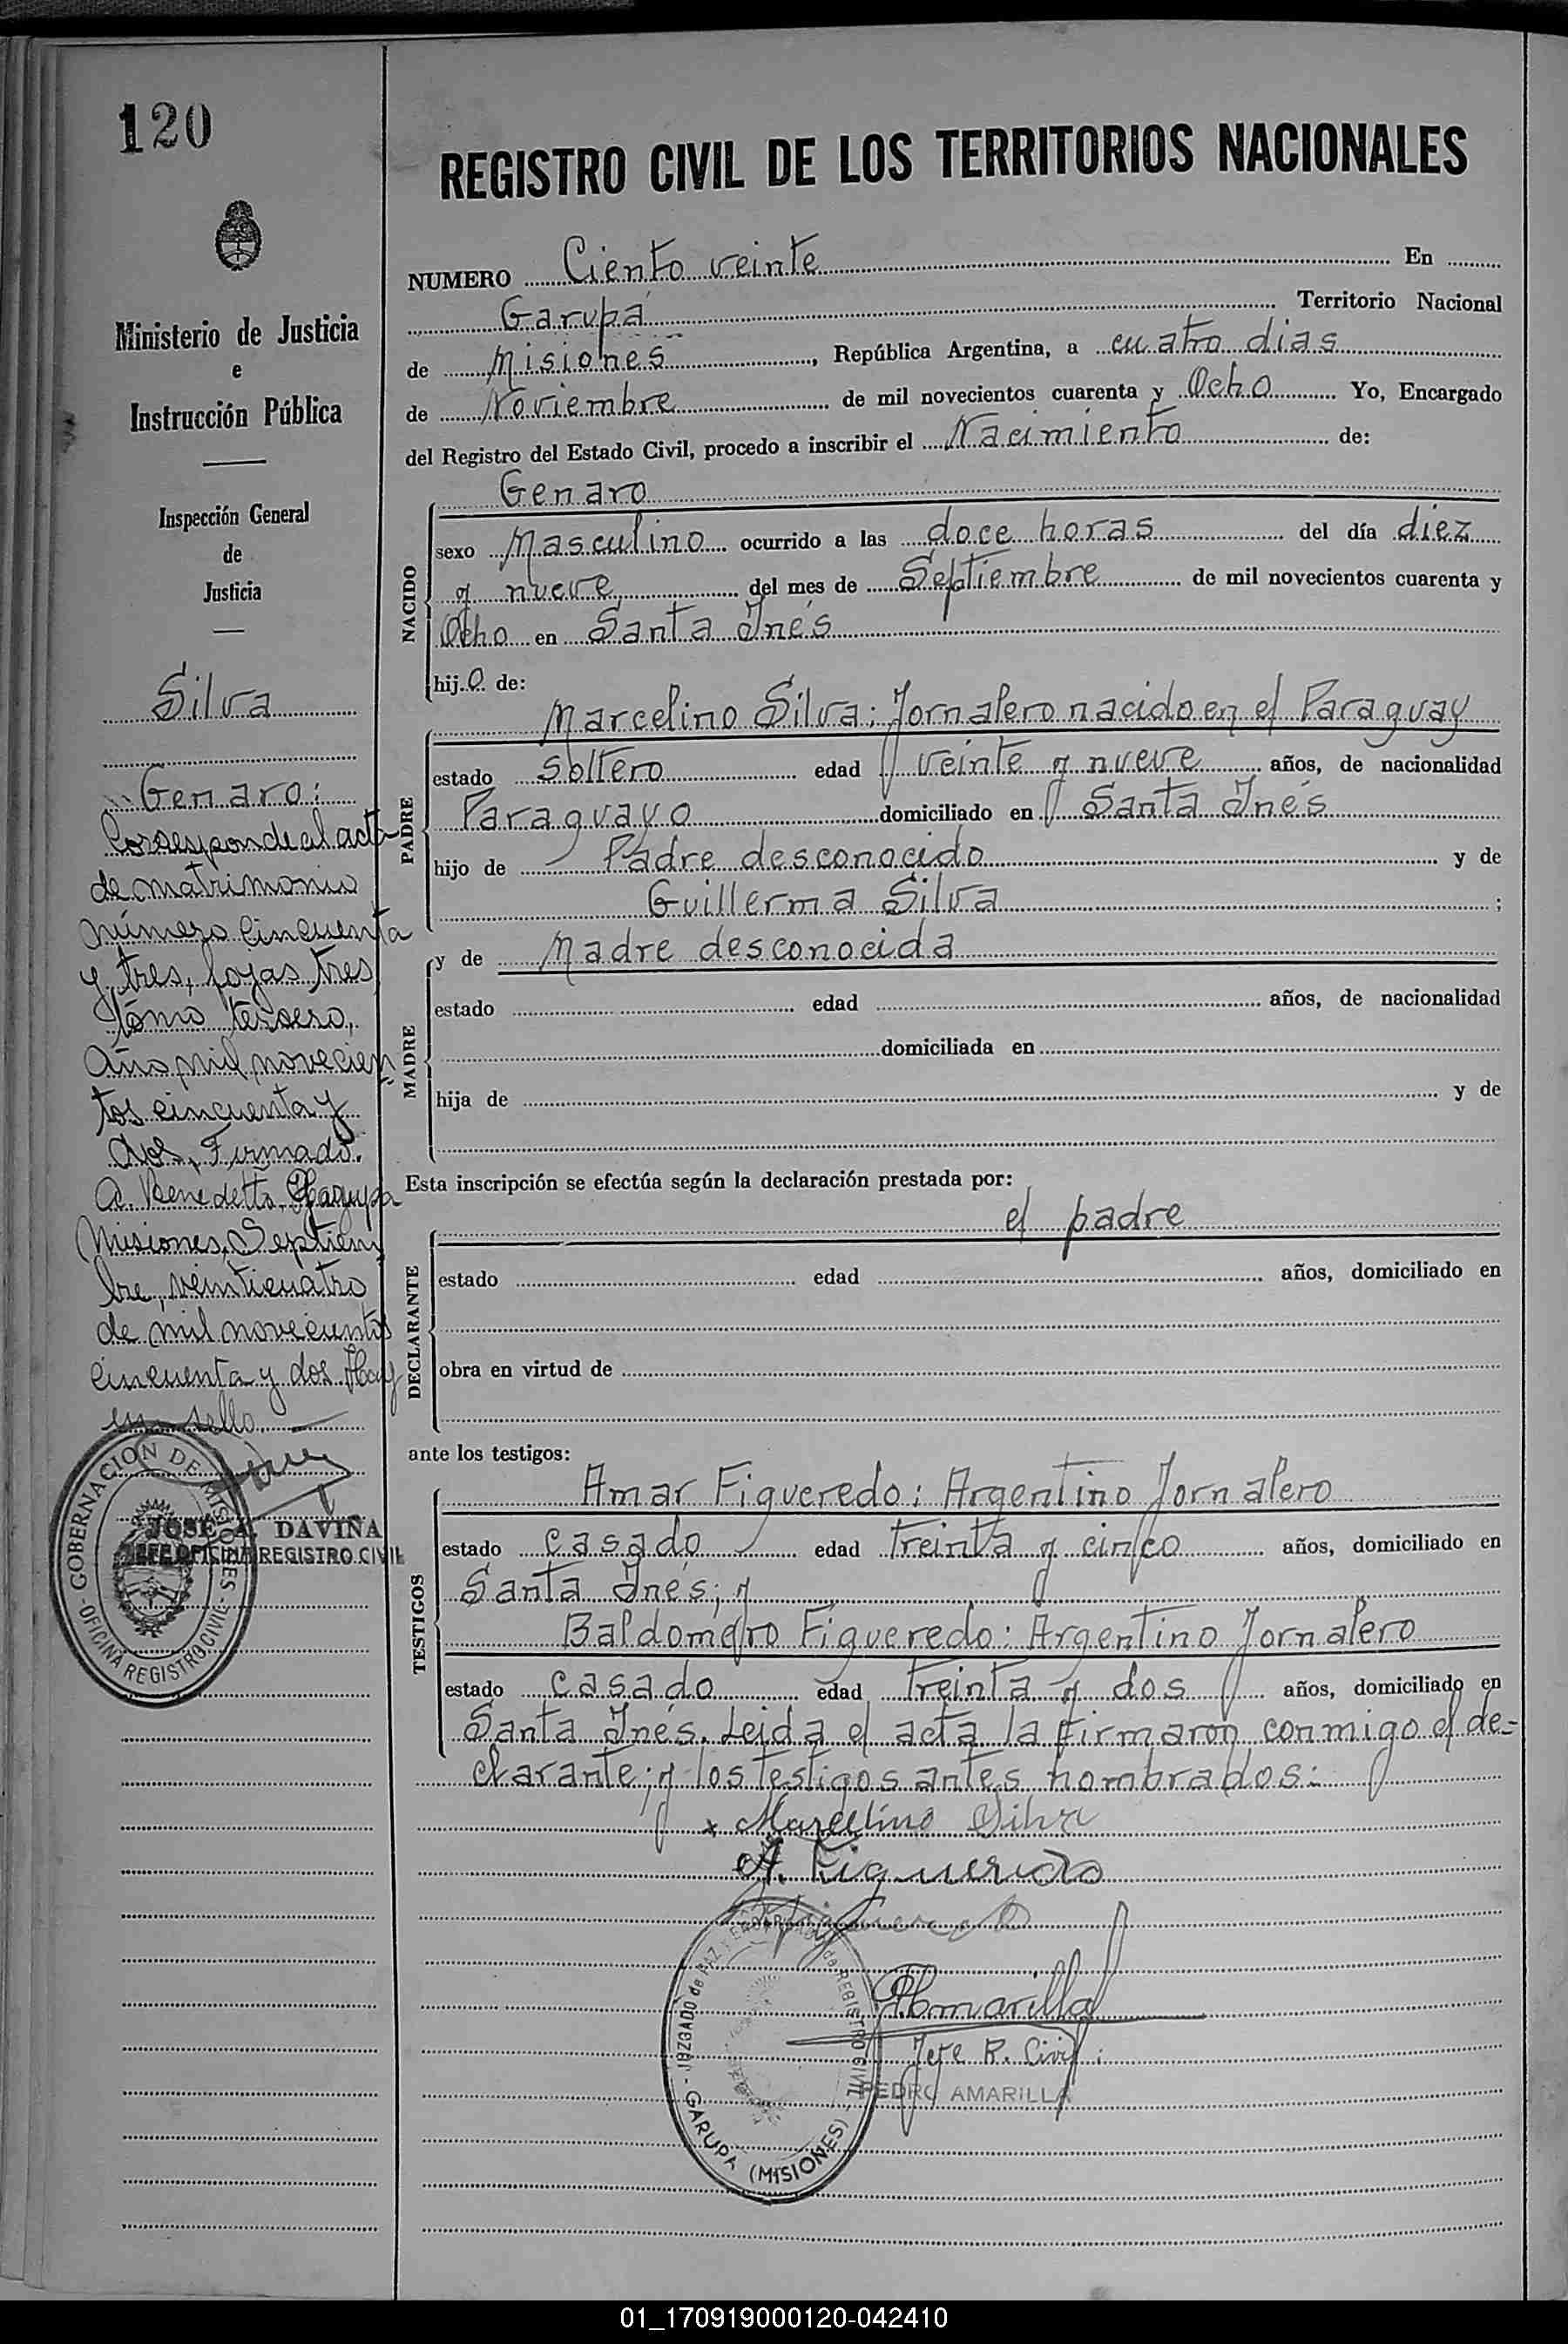 120
Ministerio de Justicia
e
Instrucción Pública
Inspección General
de
Justicia
Silva
Genaro:
Corresponde al acta
de matrimonio
número cincuenta
y tres, fojas tres
tomo tercero,
Año mil novecien
tos cincuenta y
dos, Firmado.
A. Benedetto. Garupa
Misiones, Septiem
bre, veinticuatro
de mil novecientos
cincuenta y dos. Hay
un sello.
GOBERNACION DE MISIONES
-OFICINA REGISTRO CIVIL-
JOSÉ A. DAVIÑA
JEFE OFICINA REGISTRO CIVIL
REGISTRO CIVIL DE LOS TERRITORIOS NACIONALES
NUMERO Ciento veinte En
Garupá Territorio Nacional
de Misiones, República Argentina, a cuatro dias
de Noviembre de mil novecientos cuarenta y Ocho Yo, Encargado
del Registro del Estado Civil, procedo a inscribir el Nacimiento de:
NACIDO
Genaro
sexo Masculino ocurrido a las doce horas del día diez
y nueve del mes de Septiembre de mil novecientos cuarenta y
Ocho en Santa Inés
hijo de:
PADRE
Marcelino Silva: Jornalero nacido en el Paraguay
estado soltero edad veinte y nueve años, de nacionalidad
Paraguayo domiciliado en Santa Inés
hijo de Padre desconocido y de
Guillerma Silva ;
MADRE
y de Madre desconocida
estado edad años, de nacionalidad
domiciliada en
hija de y de
Esta inscripción se efectúa según la declaración prestada por:
DECLARANTE
el padre
estado edad años, domiciliado en
obra en virtud de
ante los testigos:
TESTIGOS
Amar Figueredo: Argentino Jornalero
estado casado edad treinta y cinco años, domiciliado en
Santa Inés; y
Baldomero Figueredo: Argentino Jornalero
estado casado edad treinta y dos años, domiciliado en
Santa Inés. Leida el acta la firmaron conmigo el de-
clarante; y los testigos antes nombrados:
x Marcelino Silva
A. Figueredo
Figueredo
PAmarilla
Jefe R. Civil:
PEDRO AMARILLA
- JUZGADO de PAZ y ENCARGADO de REGISTRO CIVIL -
GARUPA (MISIONES)
01_170919000120-042410